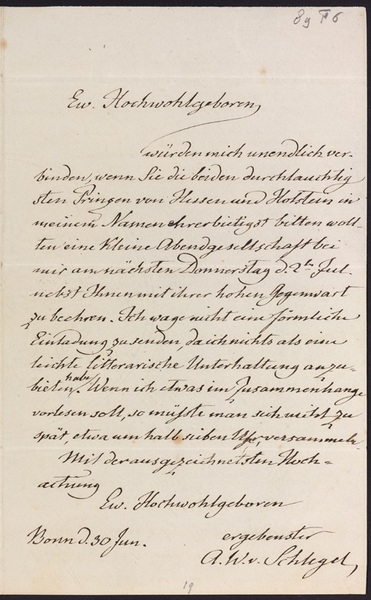 89 II 6
Ew. Hochwohlgeboren,
würden mich unendlich ver-
binden, wenn Sie die beiden durchlauchtig
sten Prinzen von Hessen und Holstein in
meinem Namen ehrerbietigst bitten woll-
ten eine kleine Abendgesellschaft bei
mir am nächsten Donnerstag d. 2ten Jul.
nebst Ihnen mit ihrer hohen Gegenwart
zu beehren. Ich wage nicht eine förmliche
Einladung zu senden, da ich nichts als eine
leichte litterarische Unterhaltung anzu-
bieten habe. Wenn ich etwas im Zusammenhange
vorlesen soll, so müßte man sich nicht zu
spät, etwa um halb sieben Uhr, versammeln.
Mit der ausgezeichnetsten Hoch-
achtung
Ew. Hochwohlgeboren
Bonn d. 30 Jun.
ergebenster
A. W. v. Schlegel
19